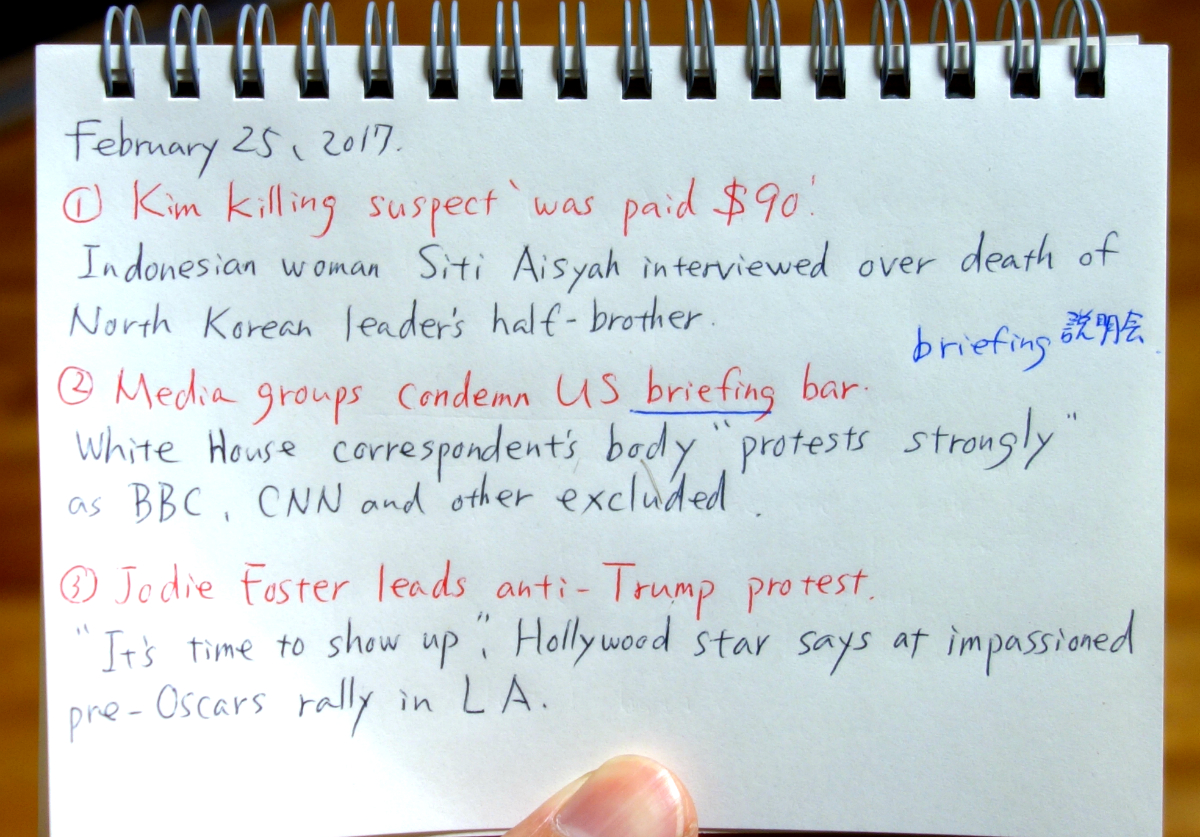 February 25, 2017.
① Kim killing suspect 'was paid $90'.
Indonesian woman Siti Aisyah interviewed over death of
North Korean leader's half-brother.
briefing 説明会
② Media groups condemn US briefing bar.
White House correspondent's body "protests strongly"
as BBC, CNN and other excluded.
③ Jodie Foster leads anti-Trump protest.
"It's time to show up", Hollywood star says at impassioned
pre-Oscars rally in LA.